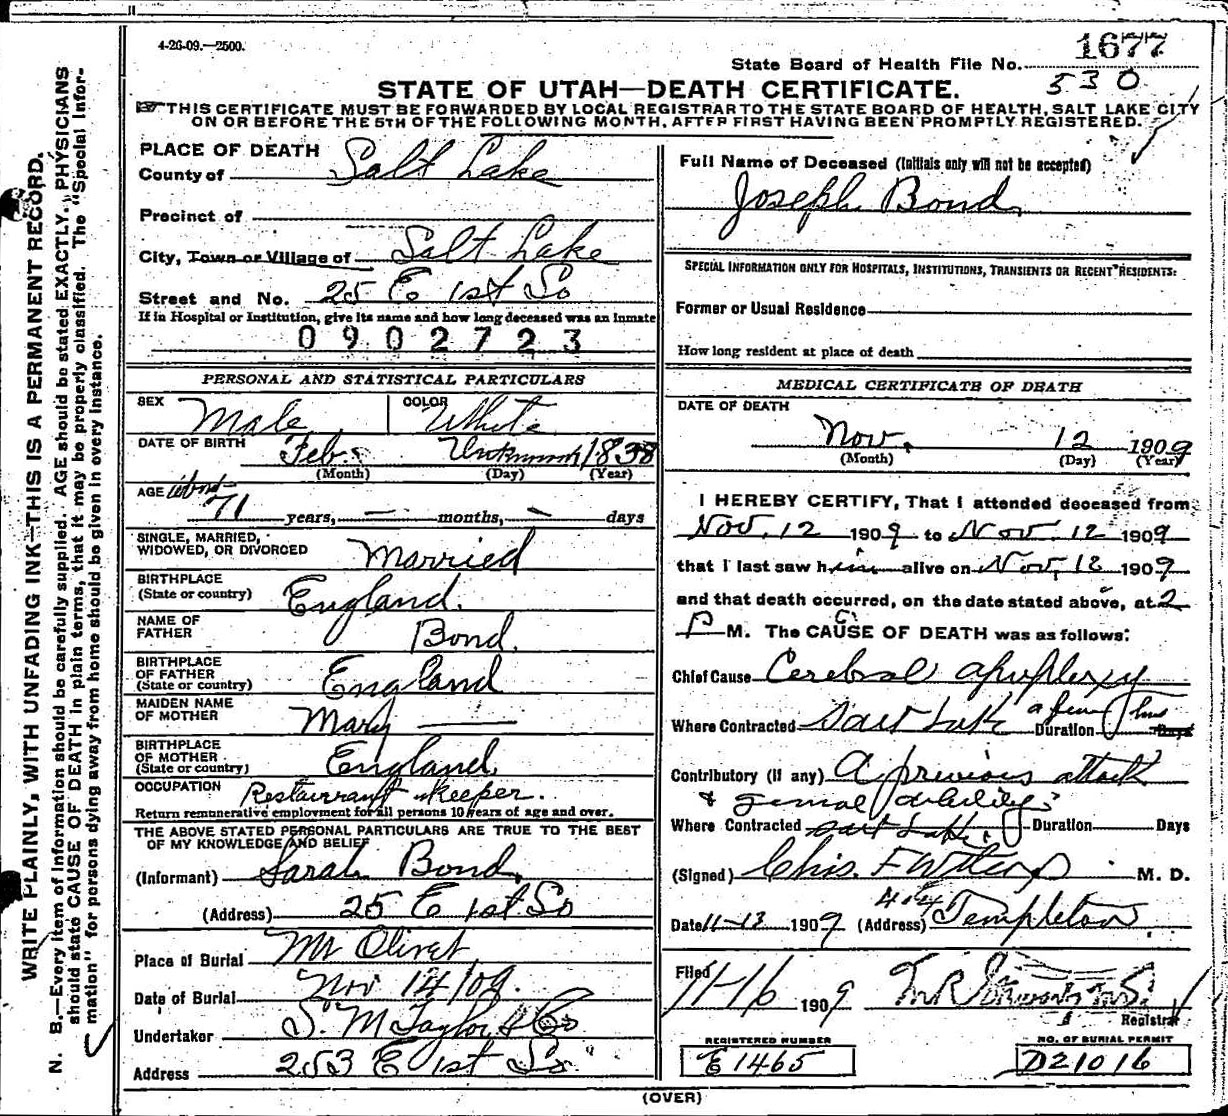 4-26-09.—2500.
1677
State Board of Health File No.
530
STATE OF UTAH—DEATH CERTIFICATE.
THIS CERTIFICATE MUST BE FORWARDED BY LOCAL REGISTRAR TO THE STATE BOARD OF HEALTH, SALT LAKE CITY
ON OR BEFORE THE 5TH OF THE FOLLOWING MONTH, AFTER FIRST HAVING BEEN PROMPTLY REGISTERED.
WRITE PLAINLY, WITH UNFADING INK—THIS IS A PERMANENT RECORD.
N. B.—Every item of information should be carefully supplied. AGE should be stated EXACTLY. PHYSICIANS
should state CAUSE OF DEATH in plain terms, that it may be properly classified. The "Special Infor-
mation" for persons dying away from home should be given in every instance.
PLACE OF DEATH
County of Salt Lake
Precinct of
City, Town or Village of Salt Lake
Street and No. 25 E 1st So
If in Hospital or Institution, give its name and how long deceased was an Inmate
0902723
PERSONAL AND STATISTICAL PARTICULARS
SEX Male COLOR White
DATE OF BIRTH Feb. Unknown 1838
(Month) (Day) (Year)
AGE about
71 years, — months, — days
SINGLE, MARRIED,
WIDOWED, OR DIVORCED Married
BIRTHPLACE
(State or country) England.
NAME OF
FATHER Bond.
BIRTHPLACE
OF FATHER
(State or country) England
MAIDEN NAME
OF MOTHER Mary —
BIRTHPLACE
OF MOTHER
(State or country) England
OCCUPATION Restaurant Keeper.
Return remunerative employment for all persons 10 years of age and over.
THE ABOVE STATED PERSONAL PARTICULARS ARE TRUE TO THE BEST
OF MY KNOWLEDGE AND BELIEF
(Informant) Sarah Bond
(Address) 25 E 1st So
Place of Burial Mt Olivet
Date of Burial Nov 14/09.
Undertaker S. M Taylor & Co
Address 253 E 1st So
Full Name of Deceased (Initials only will not be accepted)
Joseph Bond
SPECIAL INFORMATION ONLY FOR HOSPITALS, INSTITUTIONS, TRANSIENTS OR RECENT RESIDENTS:
Former or Usual Residence
How long resident at place of death
MEDICAL CERTIFICATE OF DEATH
DATE OF DEATH
Nov. 12 1909
(Month) (Day) (Year)
I HEREBY CERTIFY, That I attended deceased from
Nov. 12 1909 to Nov. 12 1909
that I last saw him alive on Nov. 12 1909
and that death occurred, on the date stated above, at 2
P M. The CAUSE OF DEATH was as follows:
Chief Cause Cerebral apoplexy
Where Contracted Salt Lake Duration a few hrs Days
Contributory (if any) A previous attack
& general debility
Where Contracted Salt Lake Duration Days
(Signed) Chas. F M. D.
Date 11-13 1909 (Address) 414 Templeton
Filed 11-16 1909
Registrar
REGISTERED NUMBER
E1465
NO. OF BURIAL PERMIT
D21016
(OVER)